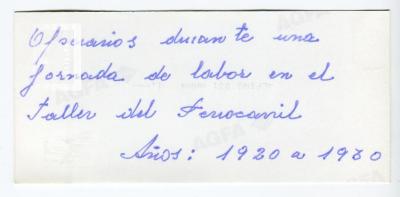 Operarios durante una
Jornada de labor en el
Taller del Ferrocarril
Años: 1920 a 1930
AGFA